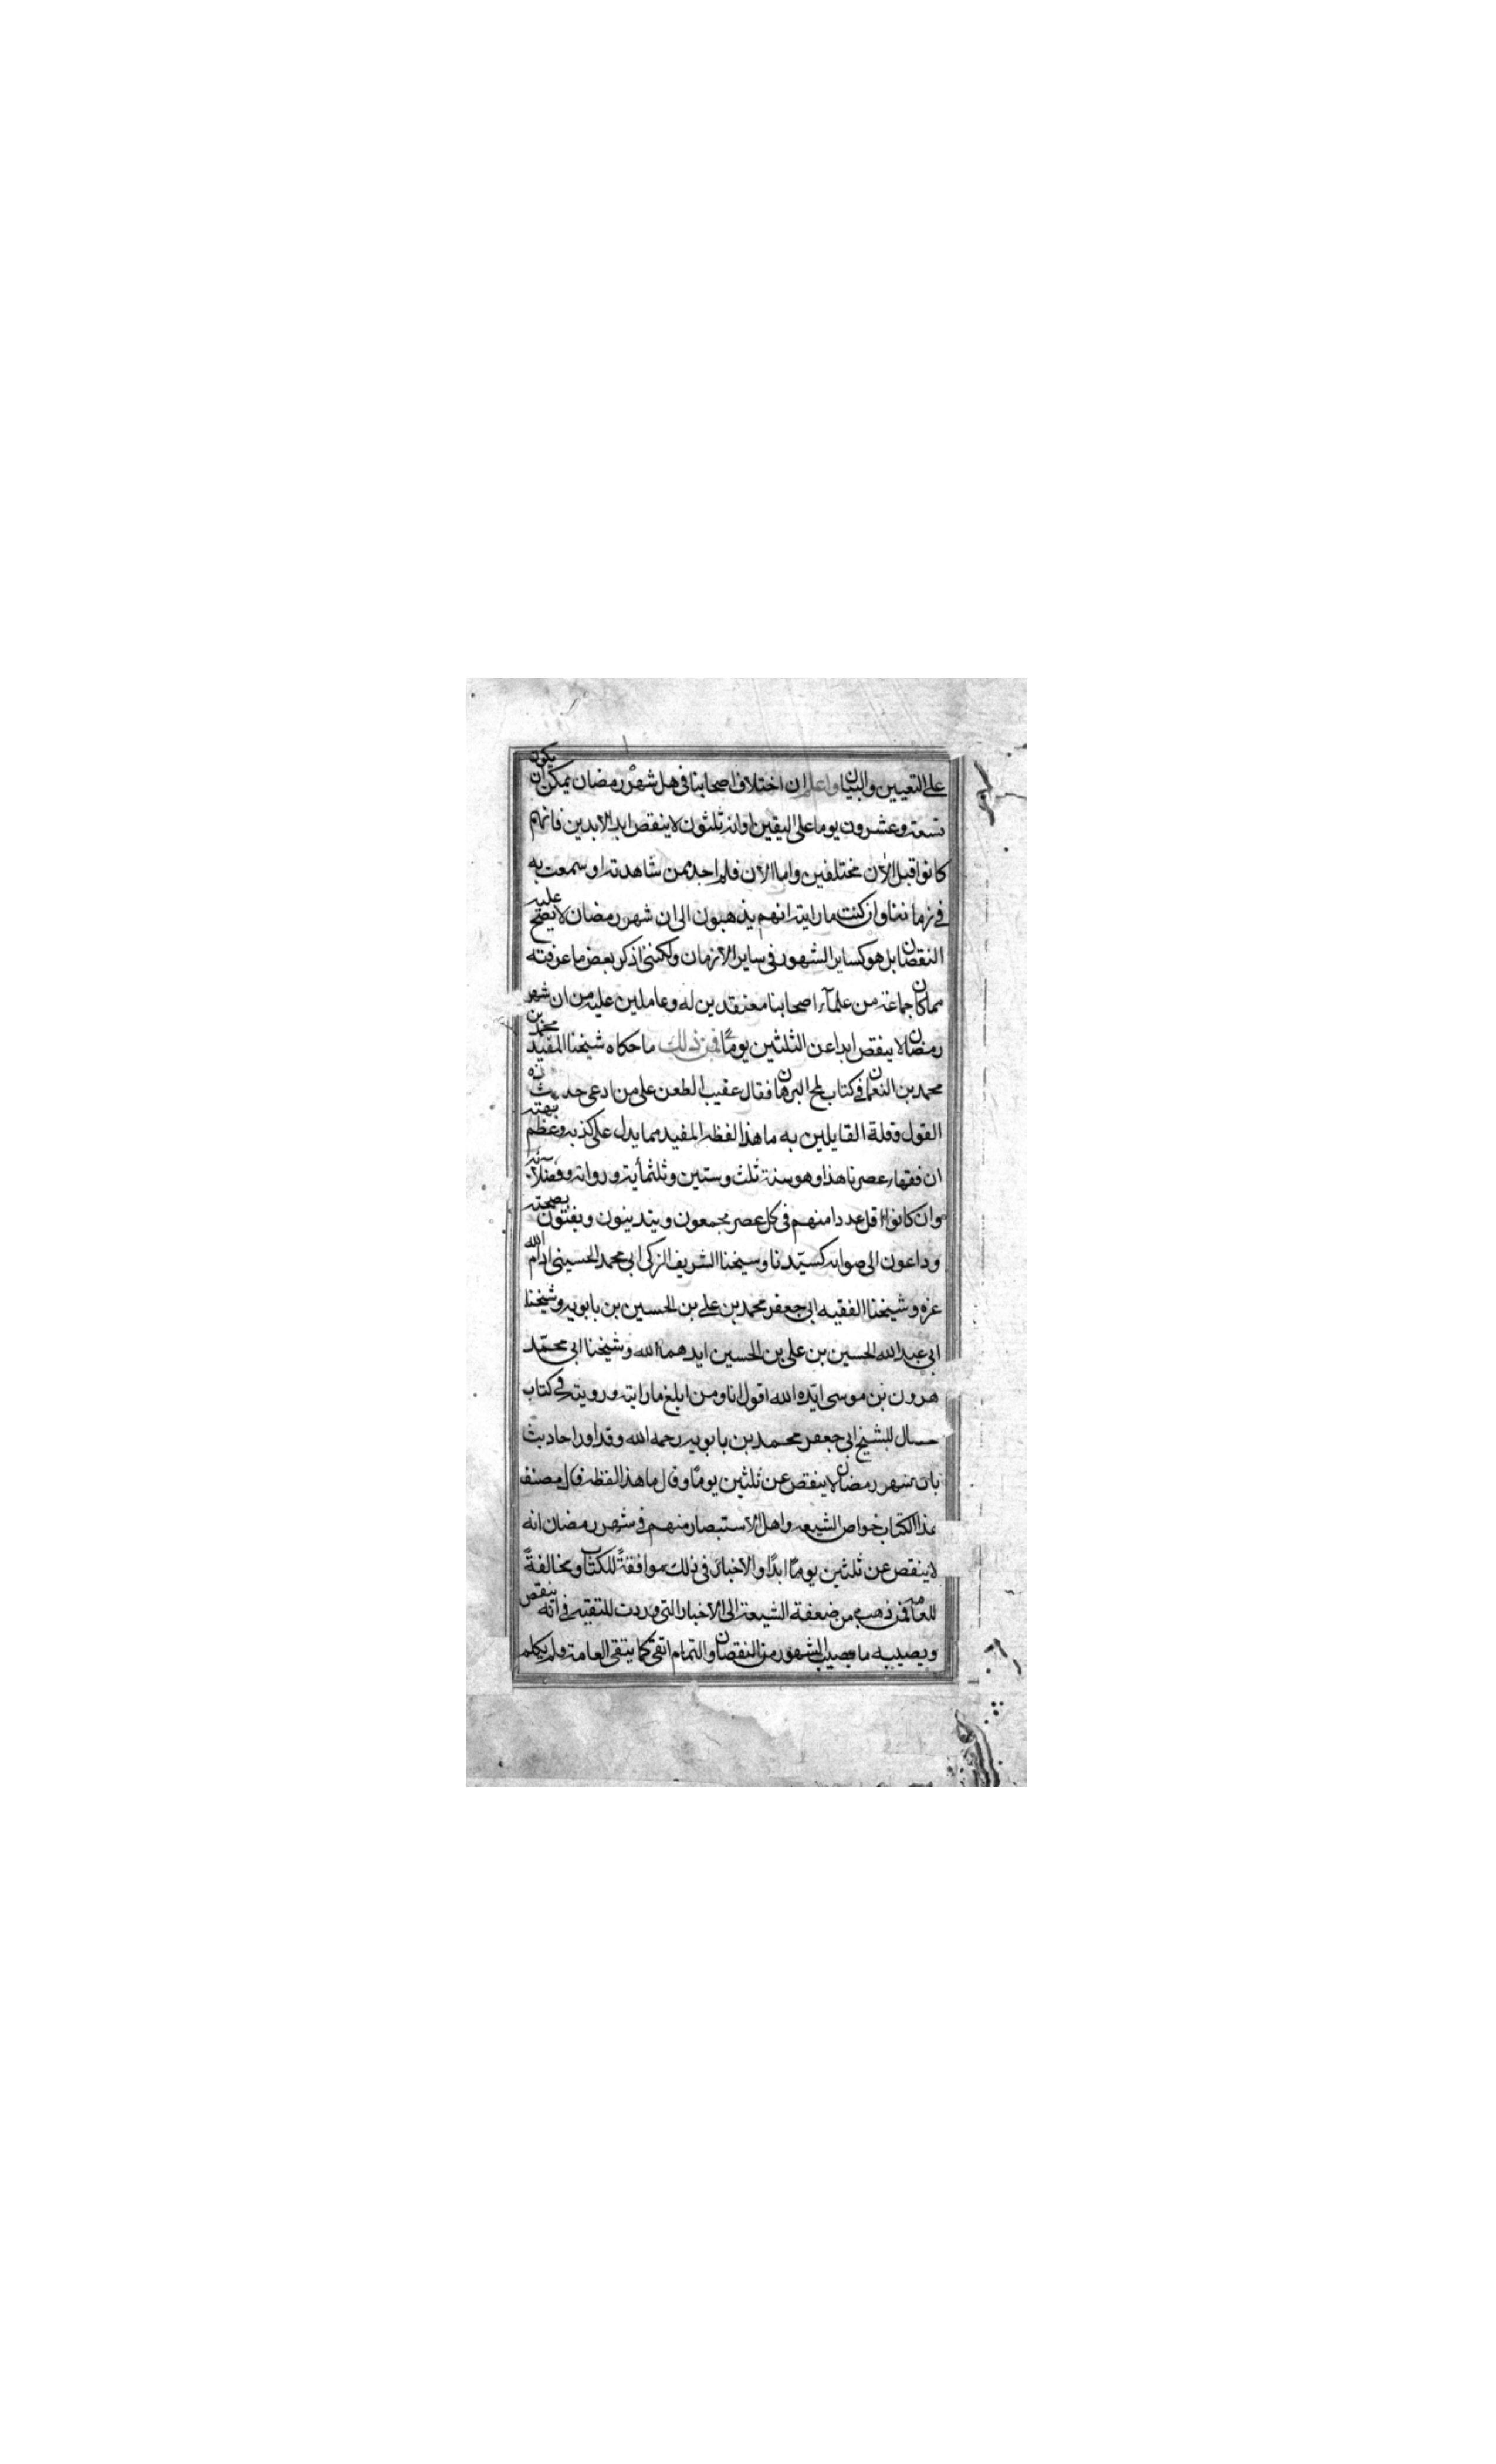 على التعيين والبيان واعلم ان اختلاف اصحابنا في هل شهر رمضان يمكن ان يكون
تسعة وعشرون يوما على اليقين او انه ثلثون لا ينقص ابد الابدين فانهم
كانوا قبل الآن مختلفين واما الآن فلم اجد ممن شاهدته او سمعت به
في زماننا وان كنت ما رايته انهم يذهبون الى ان شهر رمضان لا يصح عليه
النقصان بل هو كساير الشهور في ساير الازمان ولكنني اذكر بعض ما عرفته
مما كان جماعة من علماء اصحابنا معتقدين له وعاملين عليه من ان شهر
رمضان لا ينقص ابدا عن الثلثين يومًا فمن ذلك ما حكاه شيخنا المفيد محمد بن
محمد بن النعمان في كتاب لمح البرهان فقال عقيب الطعن على من ادعى حدوث هذه
القول وقلة القايلين به ما هذا لفظه المفيد مما يدل على كذبه وعظم بهته
ان فقهاء عصرنا هذا وهو سنة ثلث وستين وثلثمأية ورواته وفضلائه
وان كانوا اقل عددا منهم في كل عصر مجمعون ويتدينون ويفتون بصحته
وداعون الى صوابه كسيّدنا وشيخنا الشريف الزكي ابي محمد الحسيني ادام الله
عزه وشيخنا الفقيه ابي جعفر محمد بن علي بن الحسين بن بابويه وشيخنا
ابي عبد الله الحسين بن علي بن الحسين ايدهما الله وشيخنا ابي محمّد
هرون بن موسى ايّده الله اقول انا ومن ابلغ ما رايته ورويته في كتاب
للشيخ ابي جعفر محمد بن بابويه رحمه الله وقد اورد احاديث
بان شهر رمضان لا ينقص عن ثلثين يومًا وقال ما هذا لفظه قال مصنف
هذا الكتاب خواص الشيعه واهل الاستبصار منهم في شهر رمضان انه
لا ينقص عن ثلثين يومًا ابدًا والاخبار في ذلك موافقةً للكتاب ومخالفةً
للعامة فمن ذهب من ضعفة الشيعة الى الاخبار التي وردت للتقيه في انه ينقص
ويصيبه ما يصيب الشهور من النقصان والتمام اتقى كما يتقى العامة ولم يكلم